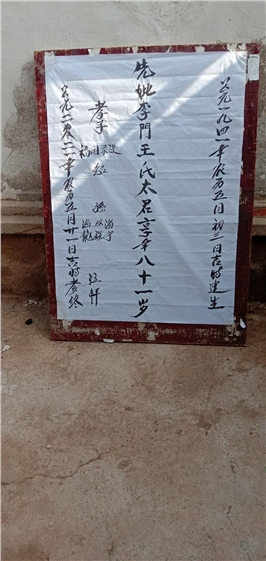 公元一九四一年农历五月初三日吉时建生
先妣李門王氏太君享年八十一岁
孝子
孫 双
海龍
泣
公元二零二一年农历五月廿一日吉时寿终